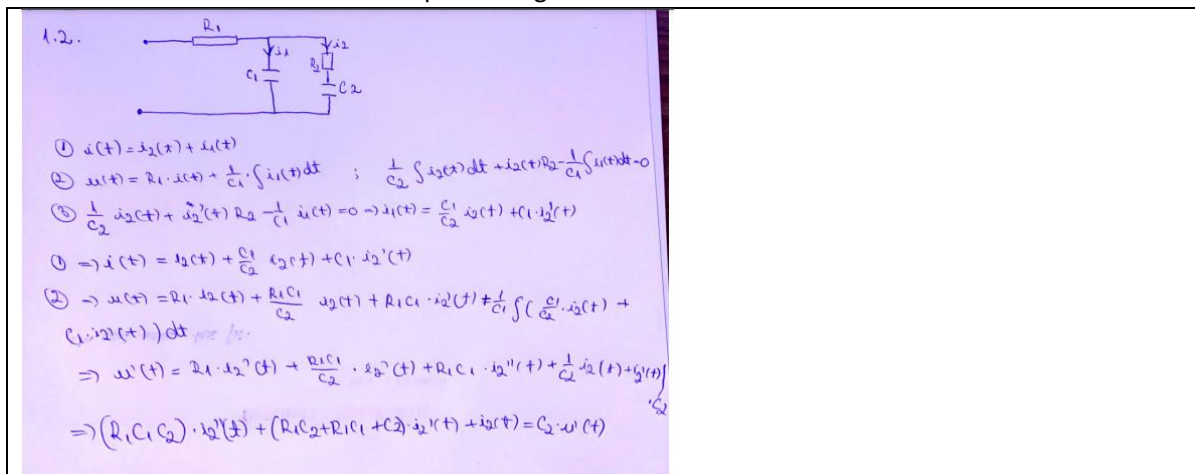 1.2.
R1
i1
i2
C1
R2
C2
① i(t) = i2(t) + i1(t)
② u(t) = R1 · i(t) + 1/C1 · ∫ i1(t) dt ; 1/C2 ∫ i2(t) dt + i2(t) R2 - 1/C1 ∫ i1(t) dt = 0
③ 1/C2 i2(t) + i2'(t) R2 - 1/C1 i1(t) = 0 => i1(t) = C1/C2 i2(t) + C1 · i2'(t)
① => i(t) = i2(t) + C1/C2 i2(t) + C1 · i2'(t)
② => u(t) = R1 · i2(t) + R1C1/C2 i2(t) + R1C1 · i2'(t) + 1/C1 ∫ ( C1/C2 · i2(t) +
C1 · i2'(t) ) dt
=> u'(t) = R1 · i2'(t) + R1C1/C2 · i2'(t) + R1C1 · i2''(t) + 1/C2 i2(t) + i2'(t) |
· C2
=> (R1C1C2) · i2''(t) + (R1C2 + R1C1 + C2) · i2'(t) + i2(t) = C2 · u'(t)